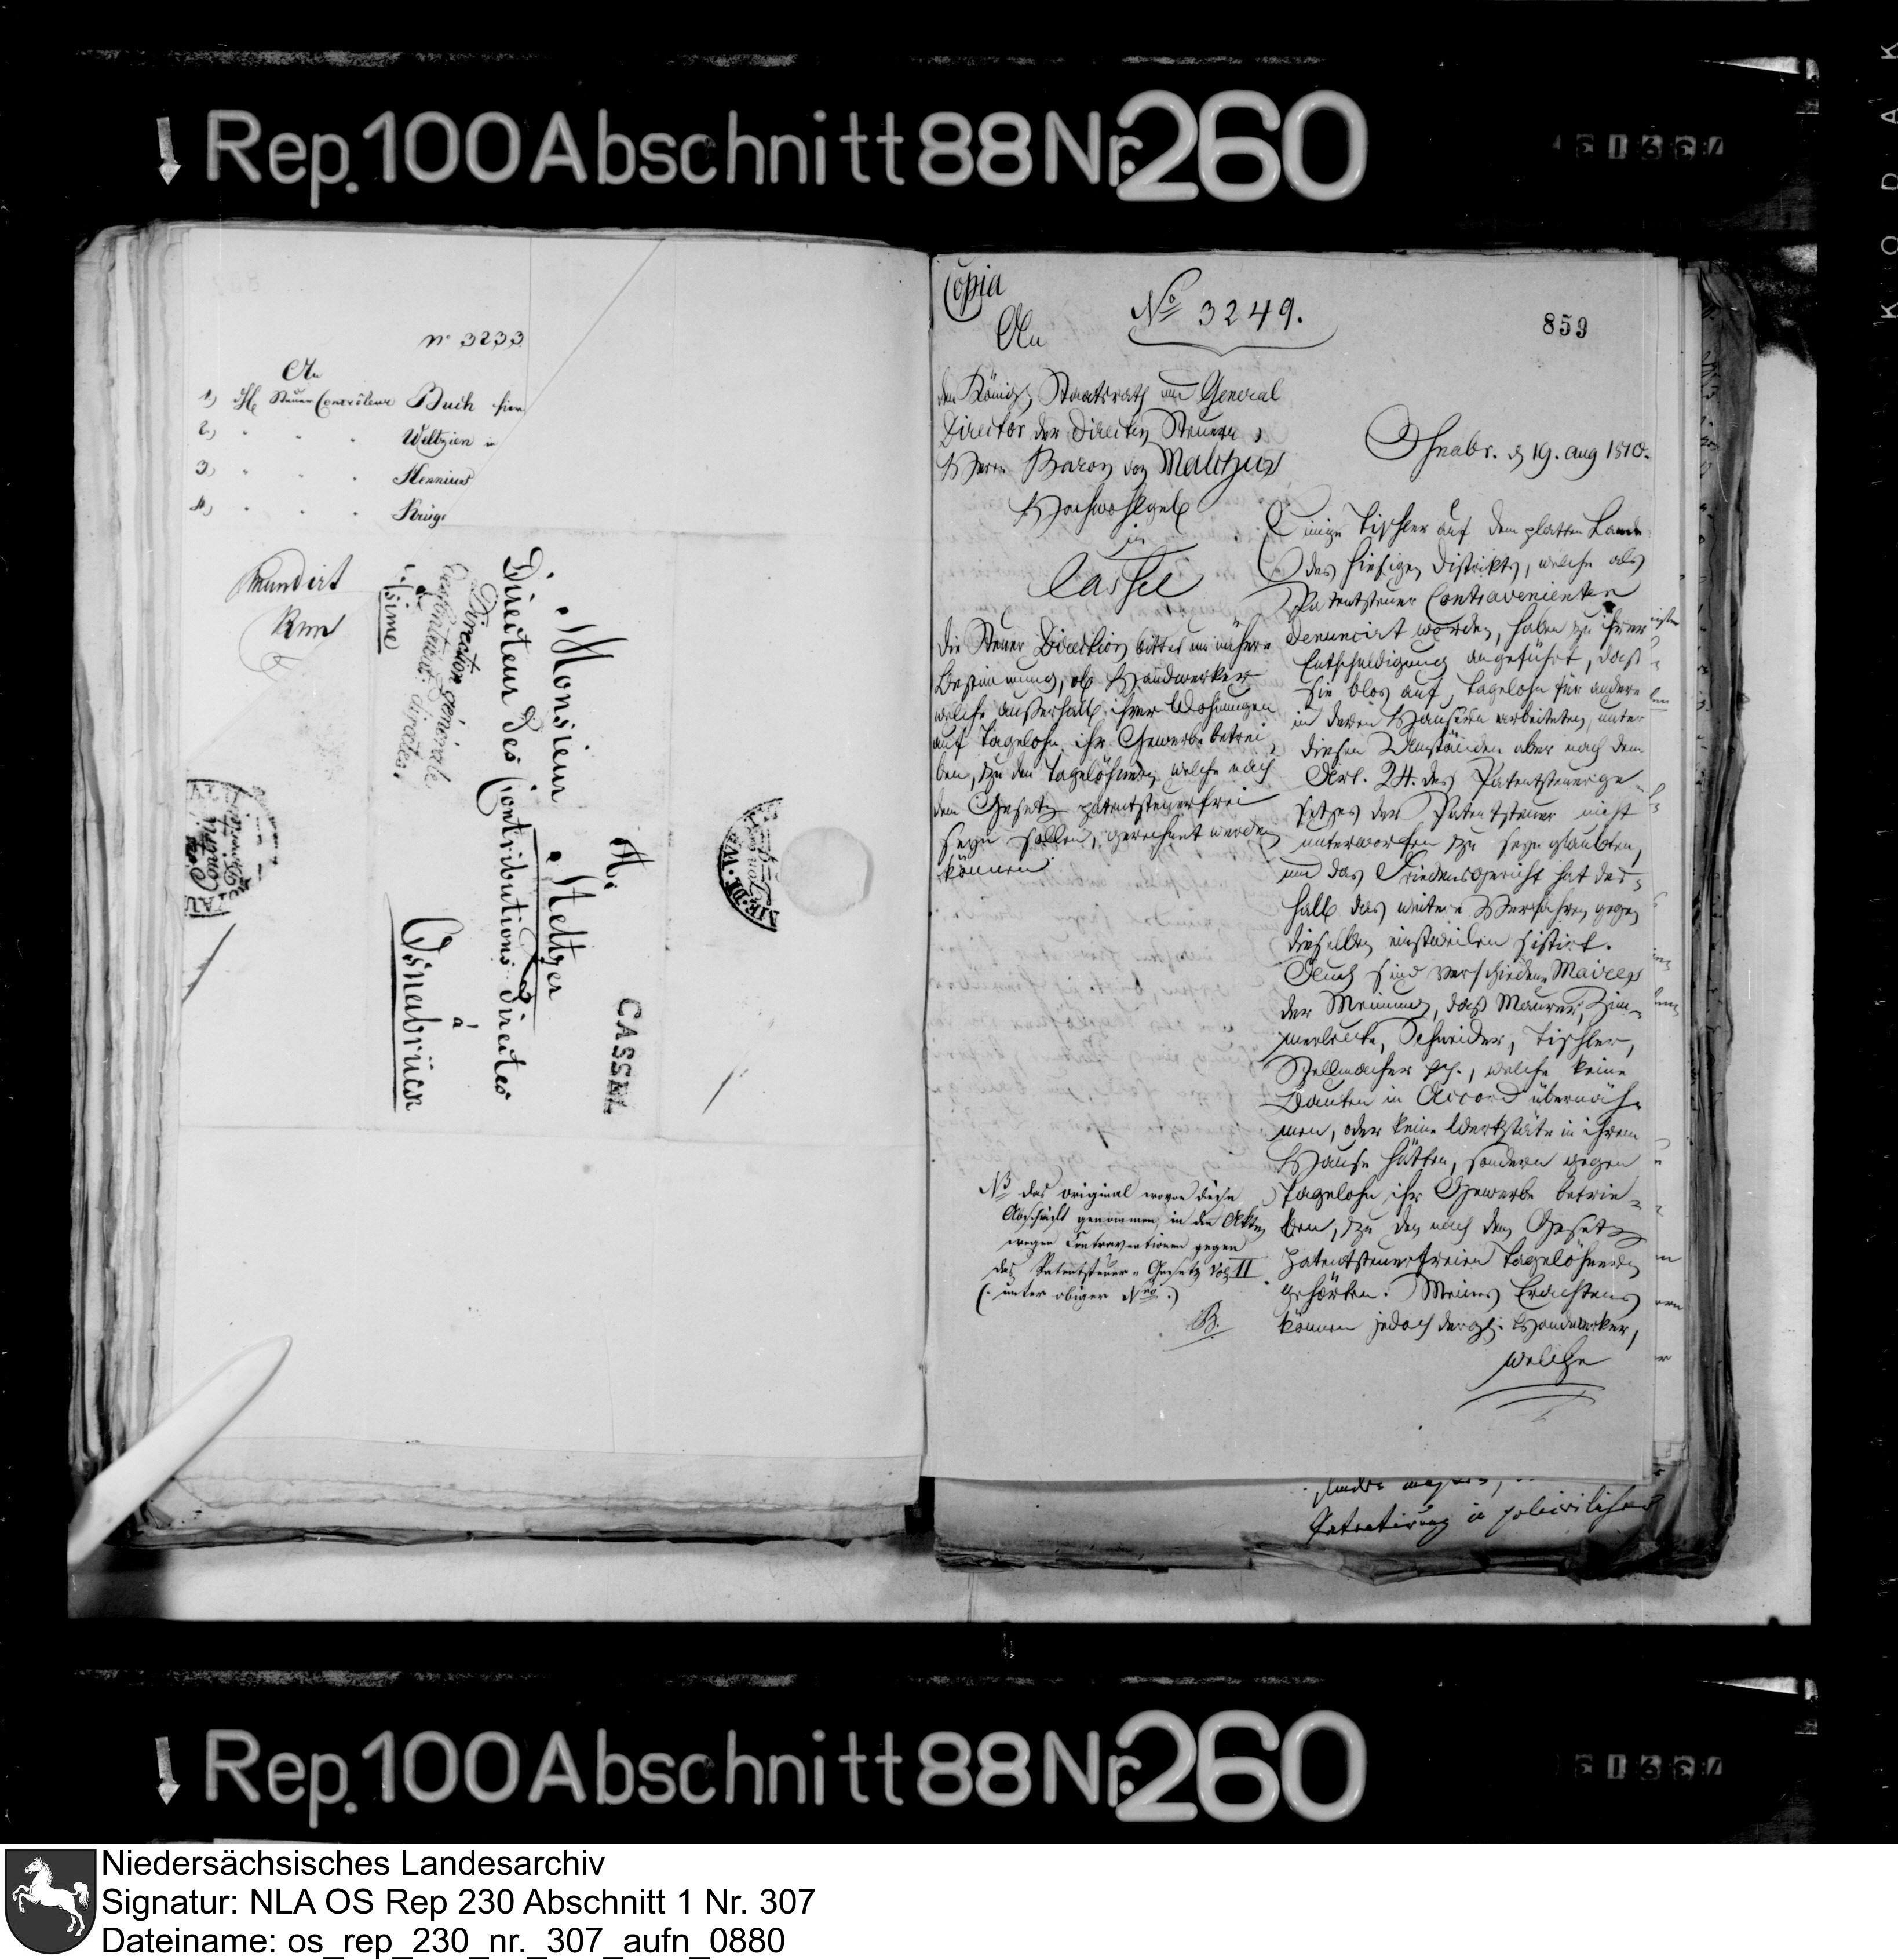 Rep. 100 Abschnitt 88 Nr. 260
KODAK
nº 3233
An
1) Steuer Controleur Buch hier
2) " " " Weltzien in
3) " " " Hennius
4) " " " Krüge
mundirt
A.
Monsieur Stelzer
Directeur des Contributions directes
à
Osnabrück
Direction générale
des Contributions directes
CASSEL
Copia
Nº 3249.
859
An
den Königl. Staatsrath und General
Director der directen Steuern,
Herrn Baron von Malchus
Hochwohlgeb
in
Cassel
Die Steuer Direktion bittet um nähere
Bestimmung, ob Handwerker
welche außerhalb ihrer Wohnungen
auf Tagelohn ihr Gewerbe betrei
ben, zu den Tagelöhnern, welche nach
dem Gesetz patentsteuerfrei
seyn sollen, gerechnet werden
können
NB das original wovon diese
Abschrift genommen, in den Akten
wegen Contraventionen gegen
das Patentsteuer-Gesetz Vol. II
(: unter obiger Nro :)
B.
Osnabr. d 19. Aug 1810.
Einige Tischler auf dem platten Lande
des hiesigen Distrikts, welche als
Patentsteuer Contravenienten
denuncirt worden, haben zu ihrer
Entschuldigung angeführt, daß
sie blos auf Tagelohn für andere
in deren Häusern arbeiteten, unter
diesen Umständen aber nach dem
Art. 24. des Patentsteuerge-
setzes der Patentsteuer nicht
unterworfen zu seyn glaubten,
und das Friedensgericht hat des-
halb das weitere Verfahren gegen
dieselben einstweilen sistirt.
Auch sind verschiedene Maires
der Meinung, daß Maurer, Zim-
merleute, Schneider, Tischler,
Stellmacher pp., welche keine
Bauten in Accord übernäh-
men, oder keine Werkstäte in ihrem
Hause hätten, sondern gegen
Tagelohn ihr Gewerbe betrie-
ben, zu den nach dem Gesetz
patentsteuerfreien Tagelöhnern
gehörten. Meines Erachtens
können jedoch dergl. Handwerker,
welche
Rep. 100 Abschnitt 88 Nr. 260
Niedersächsisches Landesarchiv
Signatur: NLA OS Rep 230 Abschnitt 1 Nr. 307
Dateiname: os_rep_230_nr._307_aufn_0880